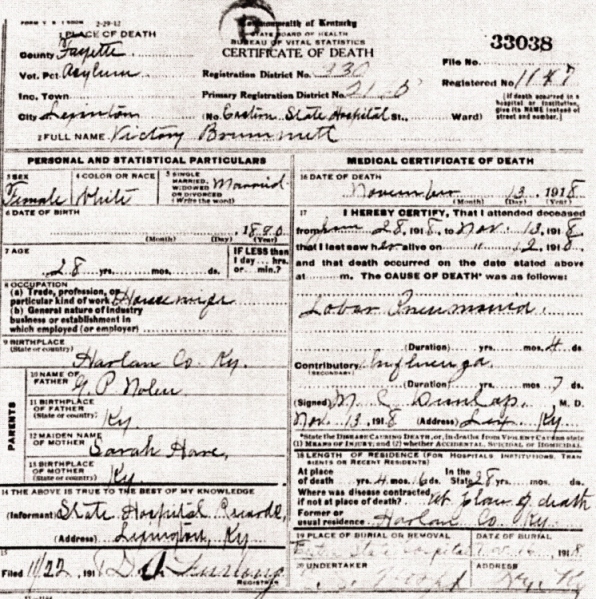 2-29-12
Commonwealth of Kentucky
STATE BOARD OF HEALTH
BUREAU OF VITAL STATISTICS
CERTIFICATE OF DEATH
33038
1 PLACE OF DEATH
County Fayette
Vot. Pct Asylum
Inc. Town
City Lexington
Registration District No.
Primary Registration District No.
(No. Eastern State Hospital St., Ward)
File No.
Registered No
(If death occurred in a
hospital or institution,
give its NAME instead of
street and number.
2 FULL NAME Victory Brummett
PERSONAL AND STATISTICAL PARTICULARS
3 SEX
Female
4 COLOR OR RACE
White
5 SINGLE
MARRIED,
WIDOWED
OR DIVORCED
(Write the word)
Married
6 DATE OF BIRTH
, 1890
(Month) (Day) (Year)
7 AGE
28 yrs. mos. ds.
IF LESS than
1 day hrs.
or min.?
8 OCCUPATION
(a) Trade, profession, or
particular kind of work Housewife
(b) General nature of industry
business or establishment in
which employed (or employer)
9 BIRTHPLACE
(State or country)
Harlan Co. Ky.
PARENTS
10 NAME OF
FATHER
G. P. Nolen
11 BIRTHPLACE
OF FATHER
(State or country)
Ky.
12 MAIDEN NAME
OF MOTHER
Sarah
13 BIRTHPLACE
OF MOTHER
(State or country)
Ky.
14 THE ABOVE IS TRUE TO THE BEST OF MY KNOWLEDGE
(Informant) State Hospital Records,
(Address) Lexington, Ky.
15
Filed 11/22, 191
REGISTRAR
MEDICAL CERTIFICATE OF DEATH
16 DATE OF DEATH
November 13, 1918
(Month) (Day) (Year)
17 I HEREBY CERTIFY, That I attended deceased
from 28, 1918, to Nov. 13, 1918,
that I last saw her alive on " 12, 1918,
and that death occurred on the date stated above
at m. The CAUSE OF DEATH* was as follows:
Lobar Pneumonia.
(Duration) yrs. mos. 4 ds.
Contributory Influenza
(SECONDARY)
(Duration) yrs. mos. 7 ds.
(Signed) Dunlap, M. D.
Nov. 13, 1918 (Address) Lex Ky.
*State the DISEASE CAUSING DEATH, or, in deaths from VIOLENT CAUSES state
(1) MEANS OF INJURY; and (2) whether ACCIDENTAL, SUICIDAL or HOMICIDAL.
18 LENGTH OF RESIDENCE (FOR HOSPITALS, INSTITUTIONS, TRAN
SIENTS OR RECENT RESIDENTS)
At place
of death yrs. 4 mos. 16 ds.
In the
State 28 yrs. mos. ds.
Where was disease contracted,
if not at place of death? at place of death
Former or
usual residence Harlan Co. Ky.
19 PLACE OF BURIAL OR REMOVAL
State Hospital
DATE OF BURIAL
1918
20 UNDERTAKER
ADDRESS
Ky